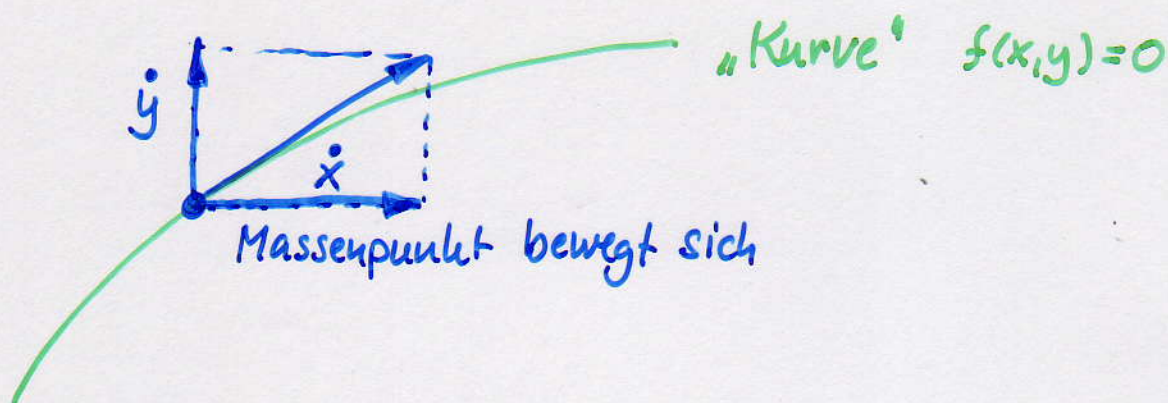 „Kurve“ f(x,y)=0
ẏ
ẋ
Massenpunkt bewegt sich